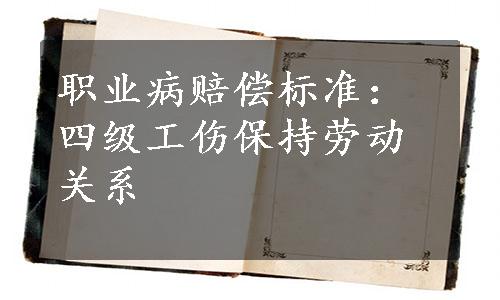 职业病赔偿标准：
四级工伤保持劳动
关系